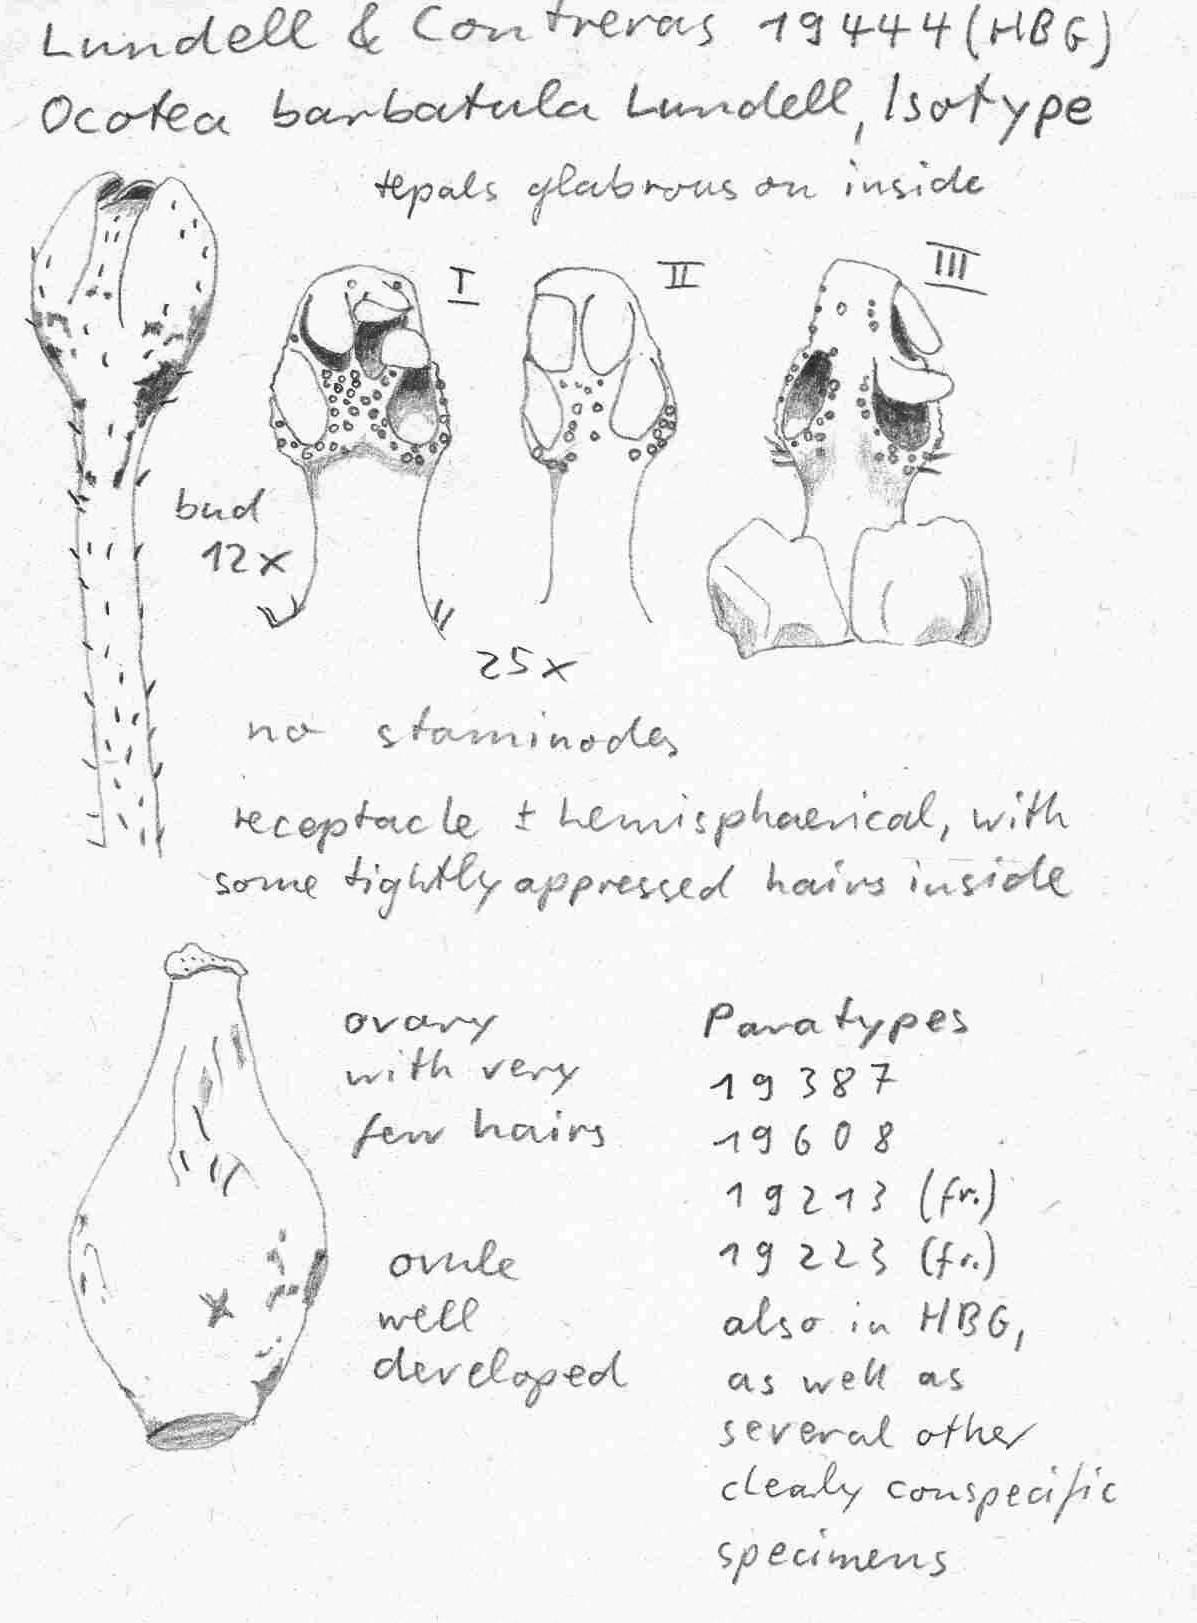 Lundell & Contreras 19444 (HBG)
Ocotea barbatula Lundell, Isotype
tepals glabrous on inside
I
II
III
bud
12x
25x
no staminodes
receptacle ± hemisphaerical, with
some tightly appressed hairs inside
ovary
with very
few hairs
ovule
well
developed
Paratypes
19387
19608
19213 (fr.)
19223 (fr.)
also in HBG,
as well as
several other
clearly conspecific
specimens